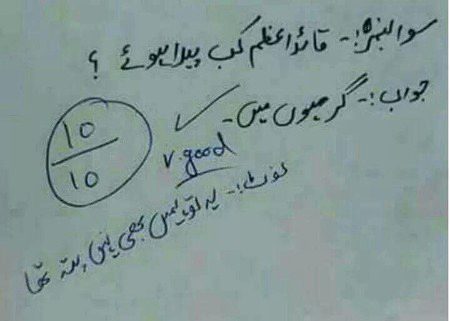 سوال نمبر ۱:- قائداعظم کب پیدا ہوئے ؟
جواب:- گرمیوں میں-
10
10
v.good
نوٹ:- یہ تو ہمیں بھی نہیں پتہ تھا